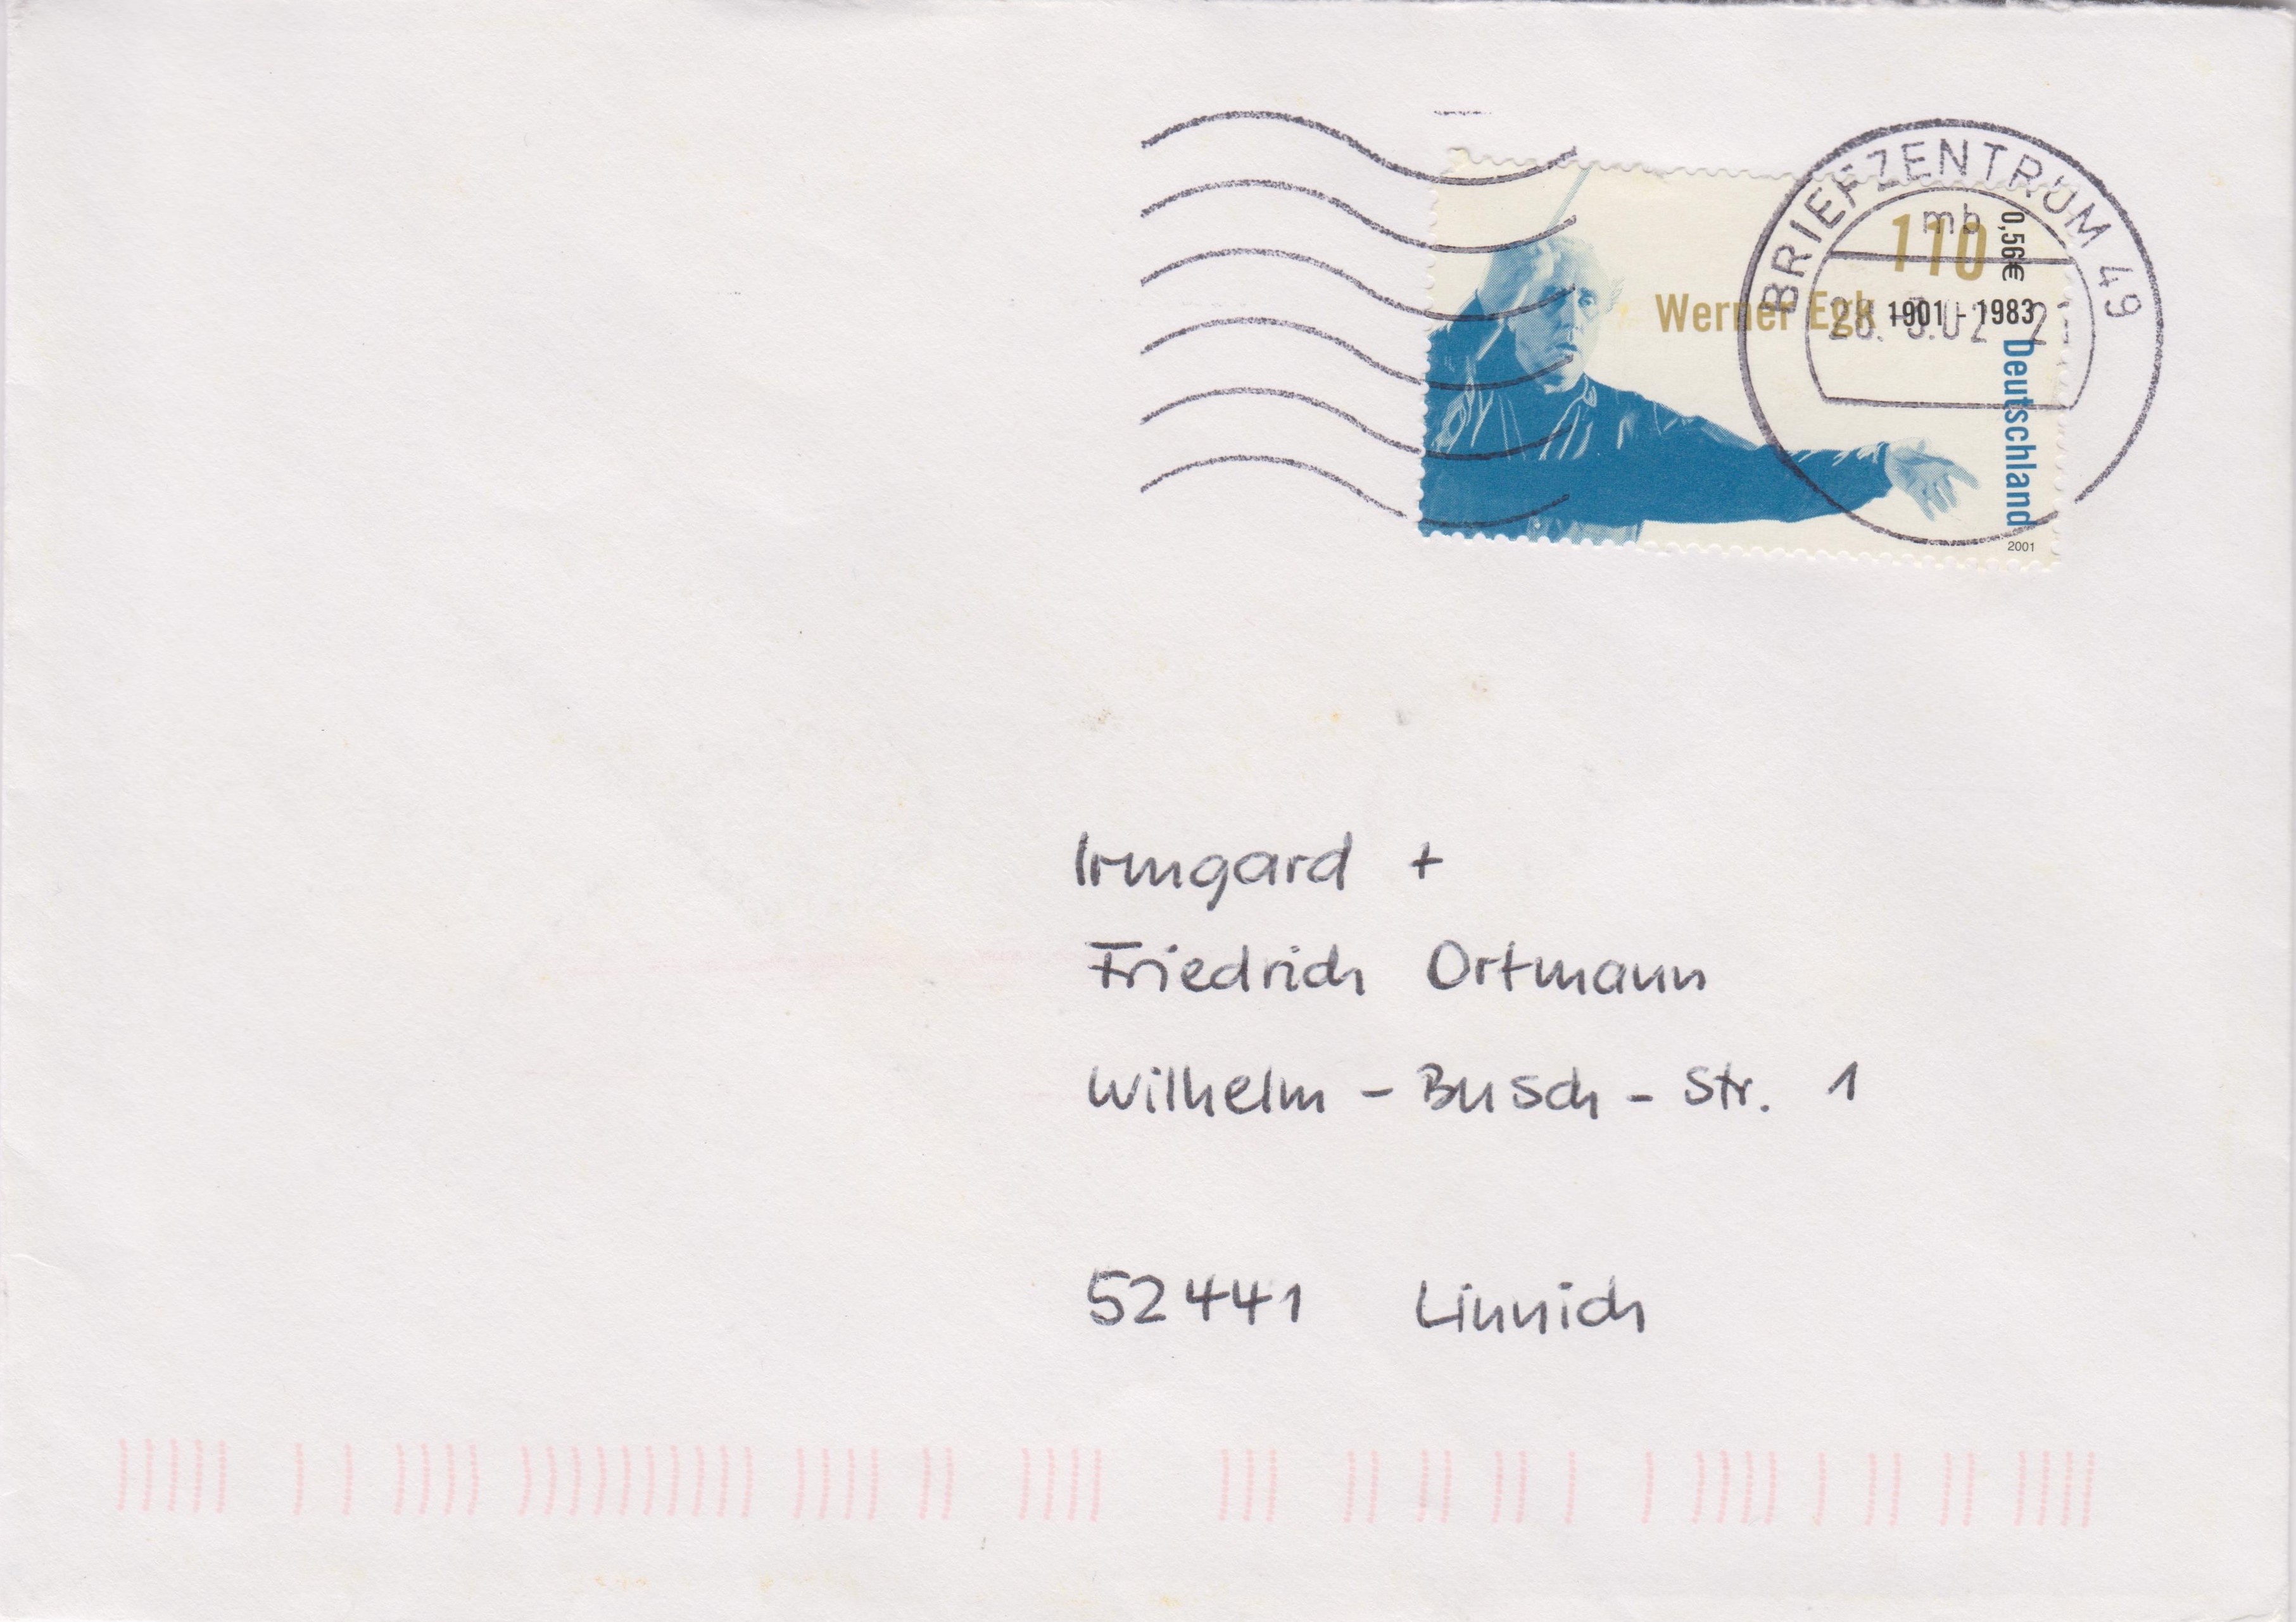 BRIEFZENTRUM 49
mb
28.-3.02-2
110
0,56€
Werner Egk 1901 - 1983
Deutschland
2001
Irmgard +
Friedrich Ortmann
Wilhelm - Busch - Str. 1
52441 Linnich